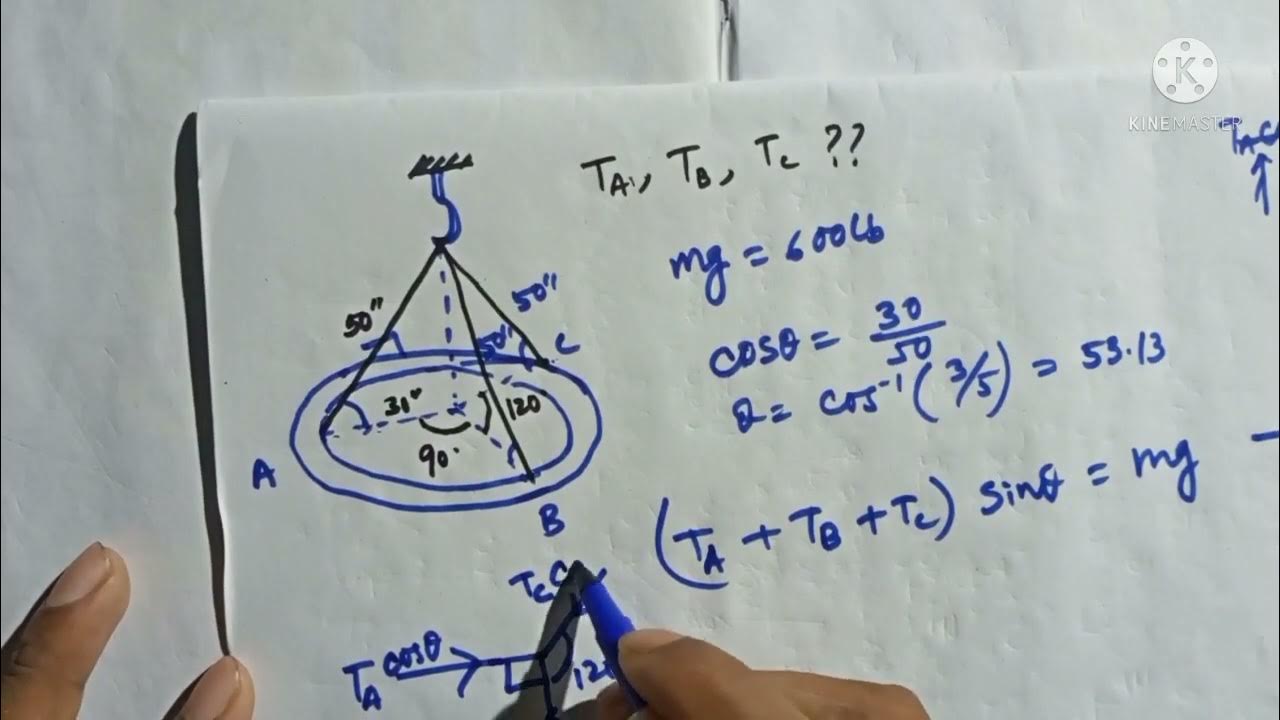 K
KINEMASTER
T_A, T_B, T_C ??
mg = 600lb
cosθ = 30/50
θ = cos⁻¹ (3/5) = 53.13
(T_A + T_B + T_C) sinθ = mg
50"
50"
50"
C
31"
120
90°
A
B
T_C
T_A cosθ